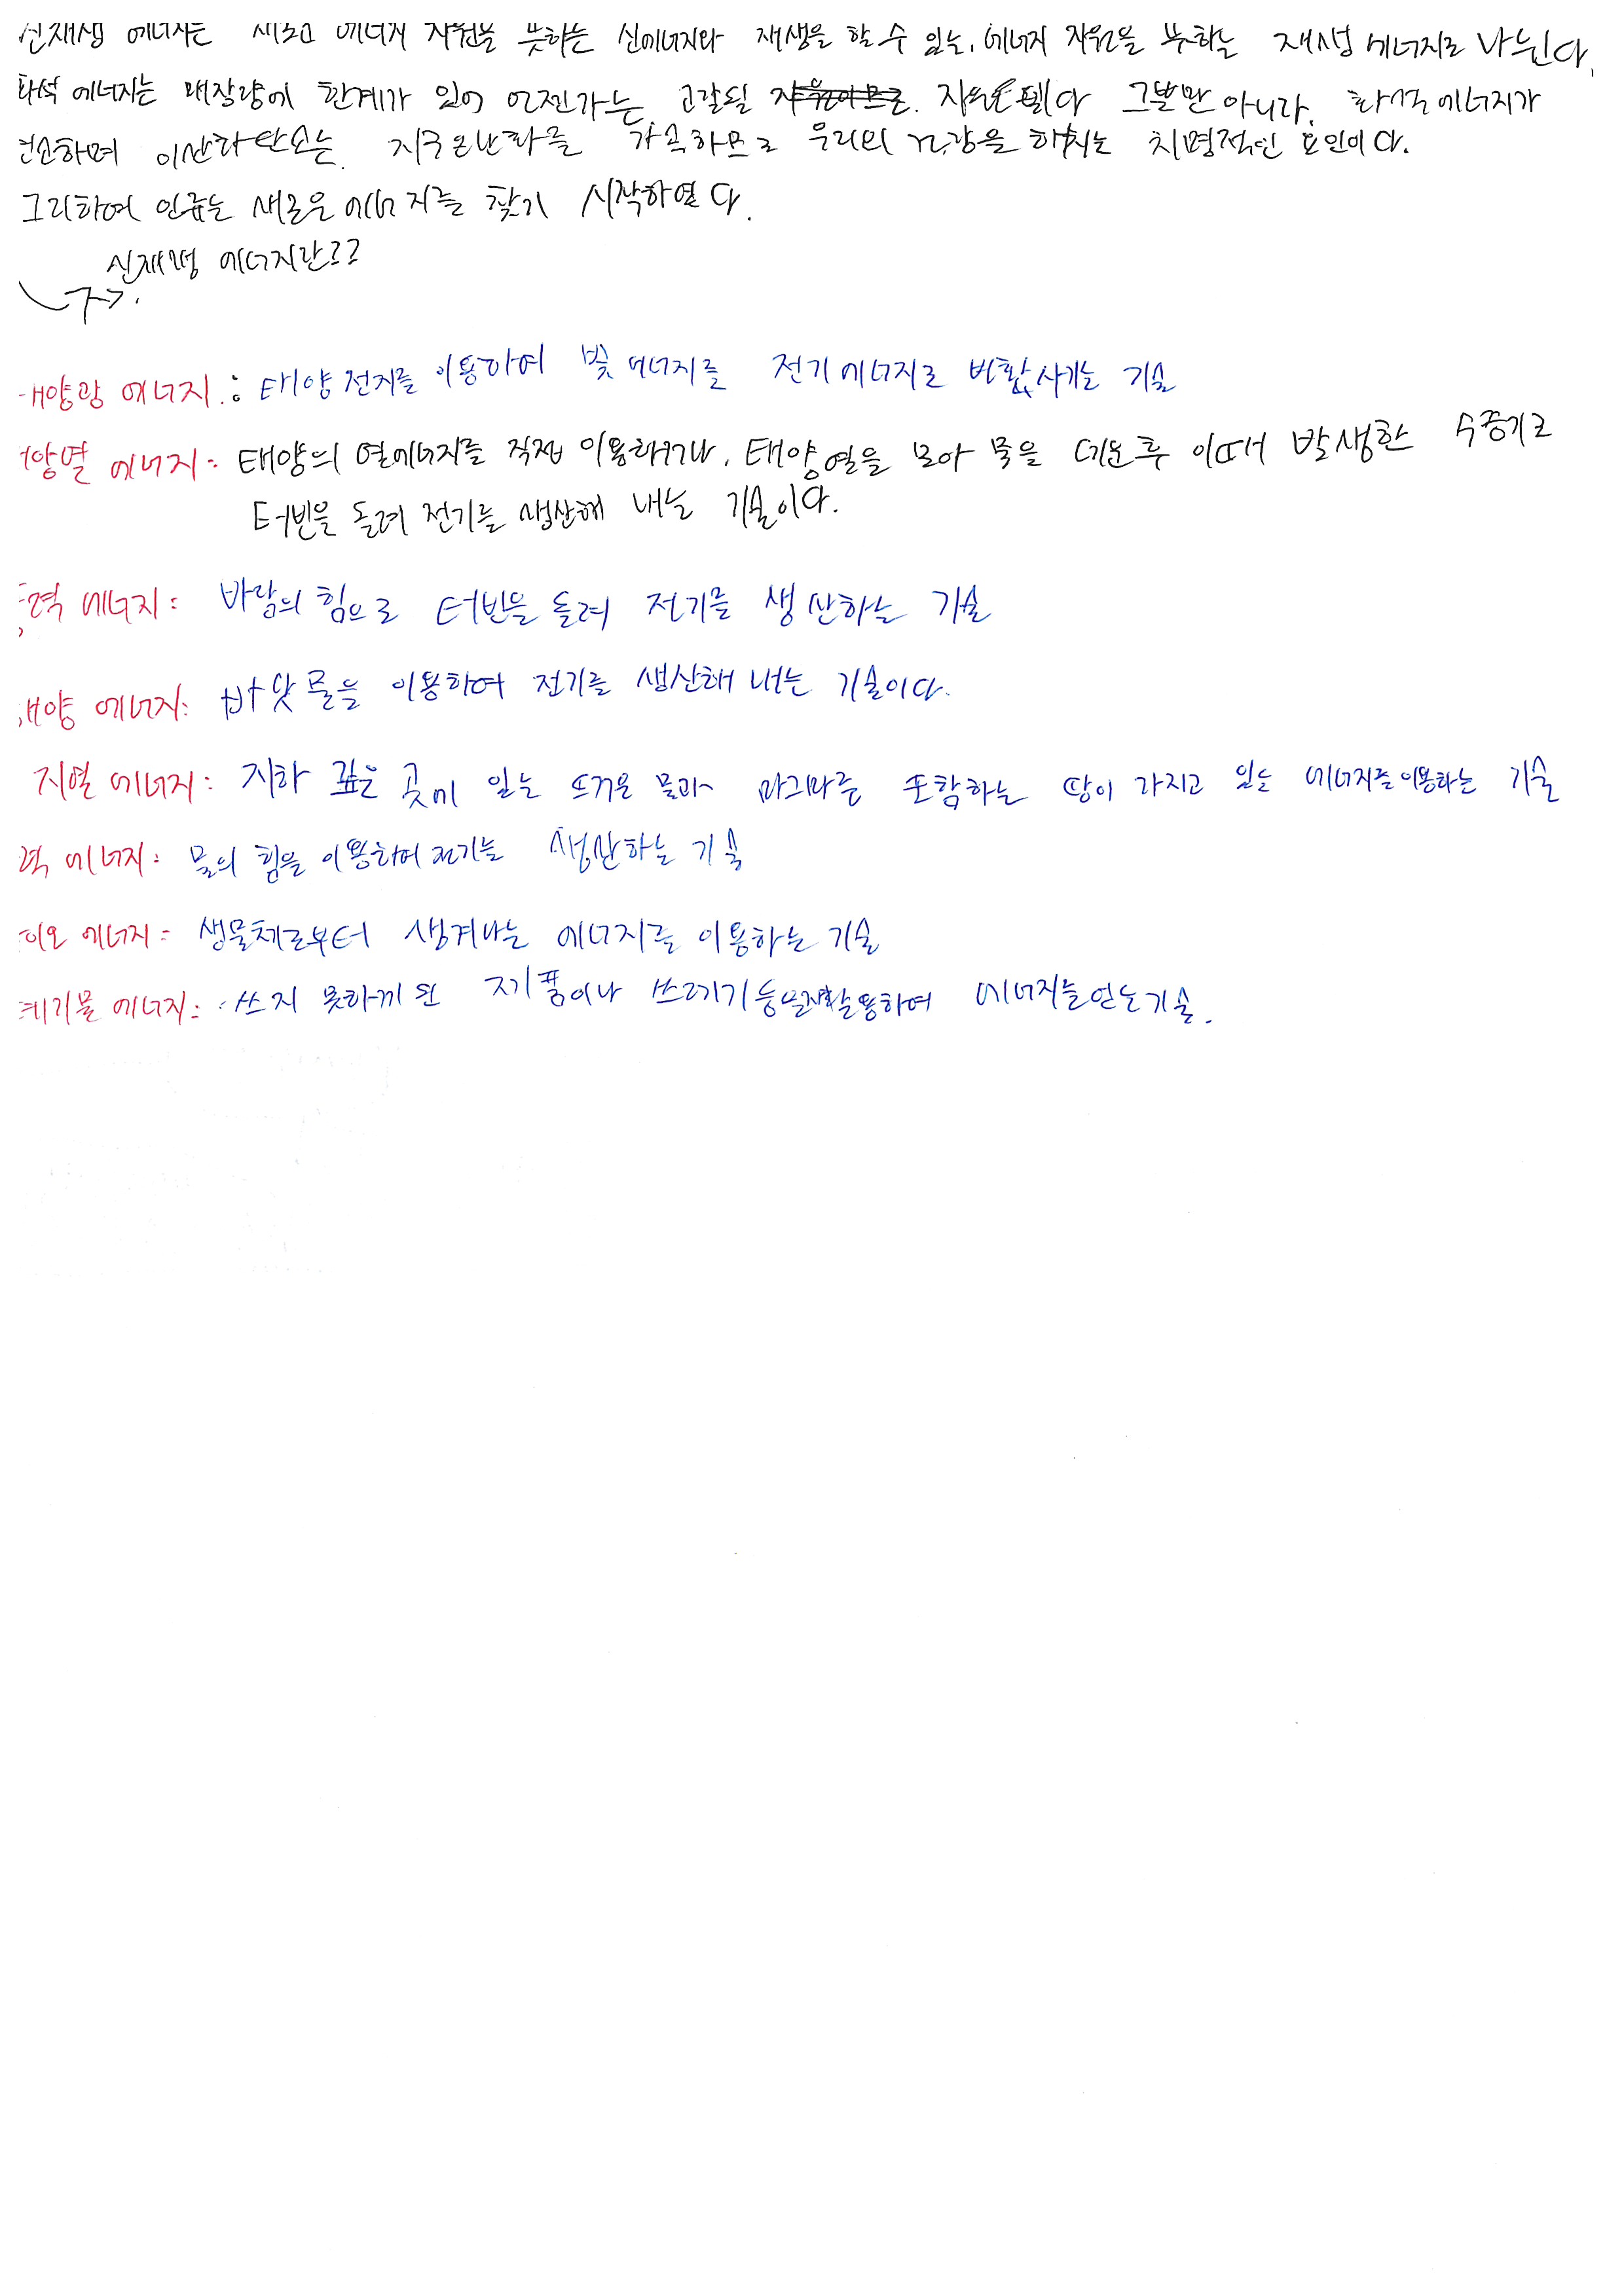 신재생 에너지는 새로운 에너지 자원을 뜻하는 신에너지와 재생을 할 수 있는, 에너지 자원을 뜻하는 재생 에너지로 나뉜다.
화석 에너지는 매장량에 한계가 있어 언젠가는 고갈될 자원이다 그뿐만 아니라, 화석 에너지가
연소하며 이산화탄소는 지구온난화를 가속하므로 우리의 건강을 해치는 치명적인 요인이다.
그리하여 인류는 새로운 에너지를 찾기 시작하였다.
신재생 에너지란??
양광 에너지 : 태양전지를 이용하여 빛 에너지를 전기에너지로 변환시키는 기술
양열 에너지: 태양의 열에너지를 직접 이용하거나, 태양열을 모아 물을 데운후 이때 발생한 수증기로
터빈을 돌려 전기를 생산해 내는 기술이다.
력 에너지: 바람의 힘으로 터빈을 돌려 전기를 생산하는 기술
양 에너지: 바닷물을 이용하여 전기를 생산해 내는 기술이다.
지열 에너지: 지하 깊은 곳에 있는 뜨거운 물과 마그마를 포함하는 땅이 가지고 있는 에너지를 이용하는 기술
력 에너지: 물의 힘을 이용하여 전기를 생산하는 기술
이오 에너지: 생물체로부터 생겨나는 에너지를 이용하는 기술
폐기물 에너지: 쓰지 못하게 된 제품이나 쓰레기 등을 재활용하여 에너지를 얻는 기술.